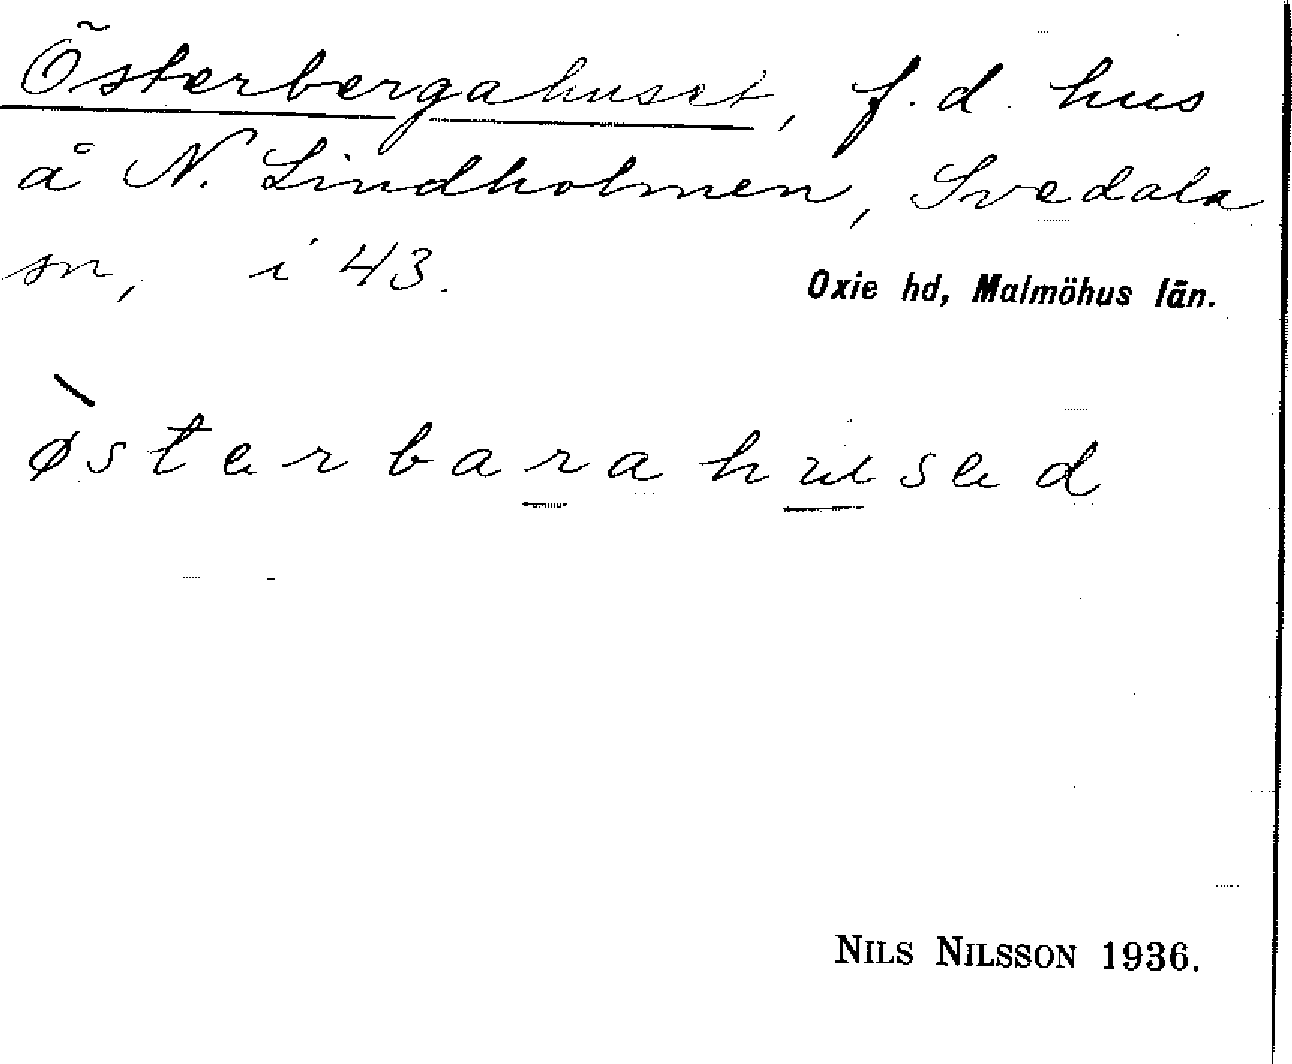 Österbergahuset, f. d. hus
å N. Lindholmen, Svedala
sn, i 43.
Oxie hd, Malmöhus län.
østerbarahused
NILS NILSSON 1936.